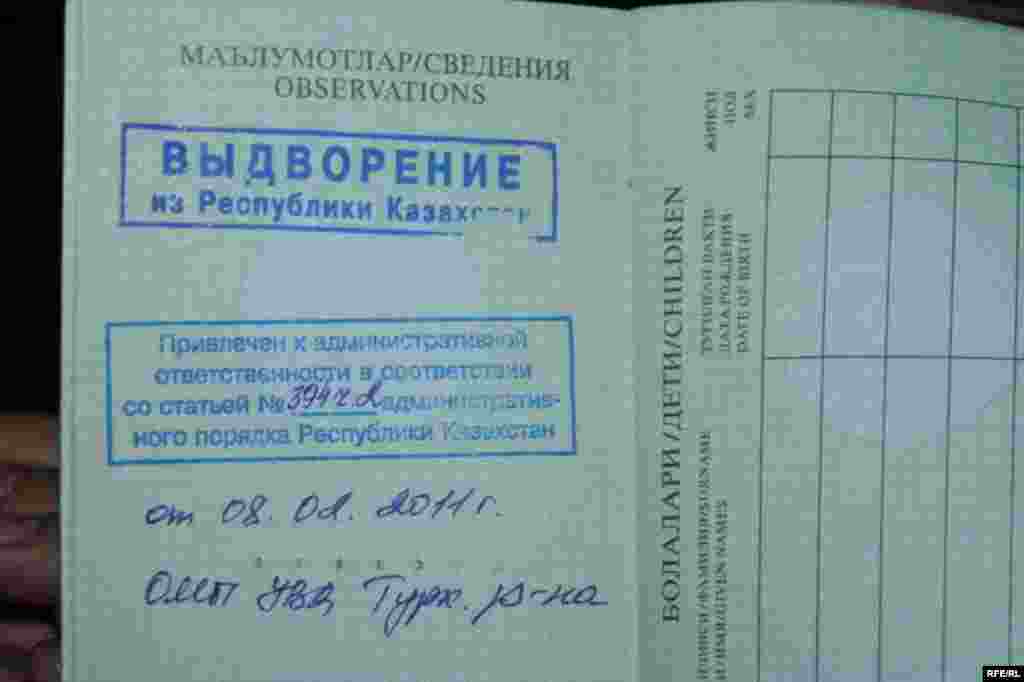 МАЪЛУМОТЛАР/СВЕДЕНИЯ
OBSERVATIONS
ВЫДВОРЕНИЕ
из Республики Казахстан
Привлечен к административной
ответственности в соответствии
со статьей № 394 ч. 2 административ-
ного порядка Республики Казахстан
от 08. 02. 2011 г.
ОМП УВД Турк. р-на
БОЛАЛАРИ/ДЕТИ/CHILDREN
ЖИНСИ
ПОЛ
SEX
ТУҒИЛГАН ВАҚТИ
ДАТА РОЖДЕНИЯ
DATE OF BIRTH
ФАМИЛИЯ/SURNAME
ИМЯ/GIVEN NAMES
RFE/RL